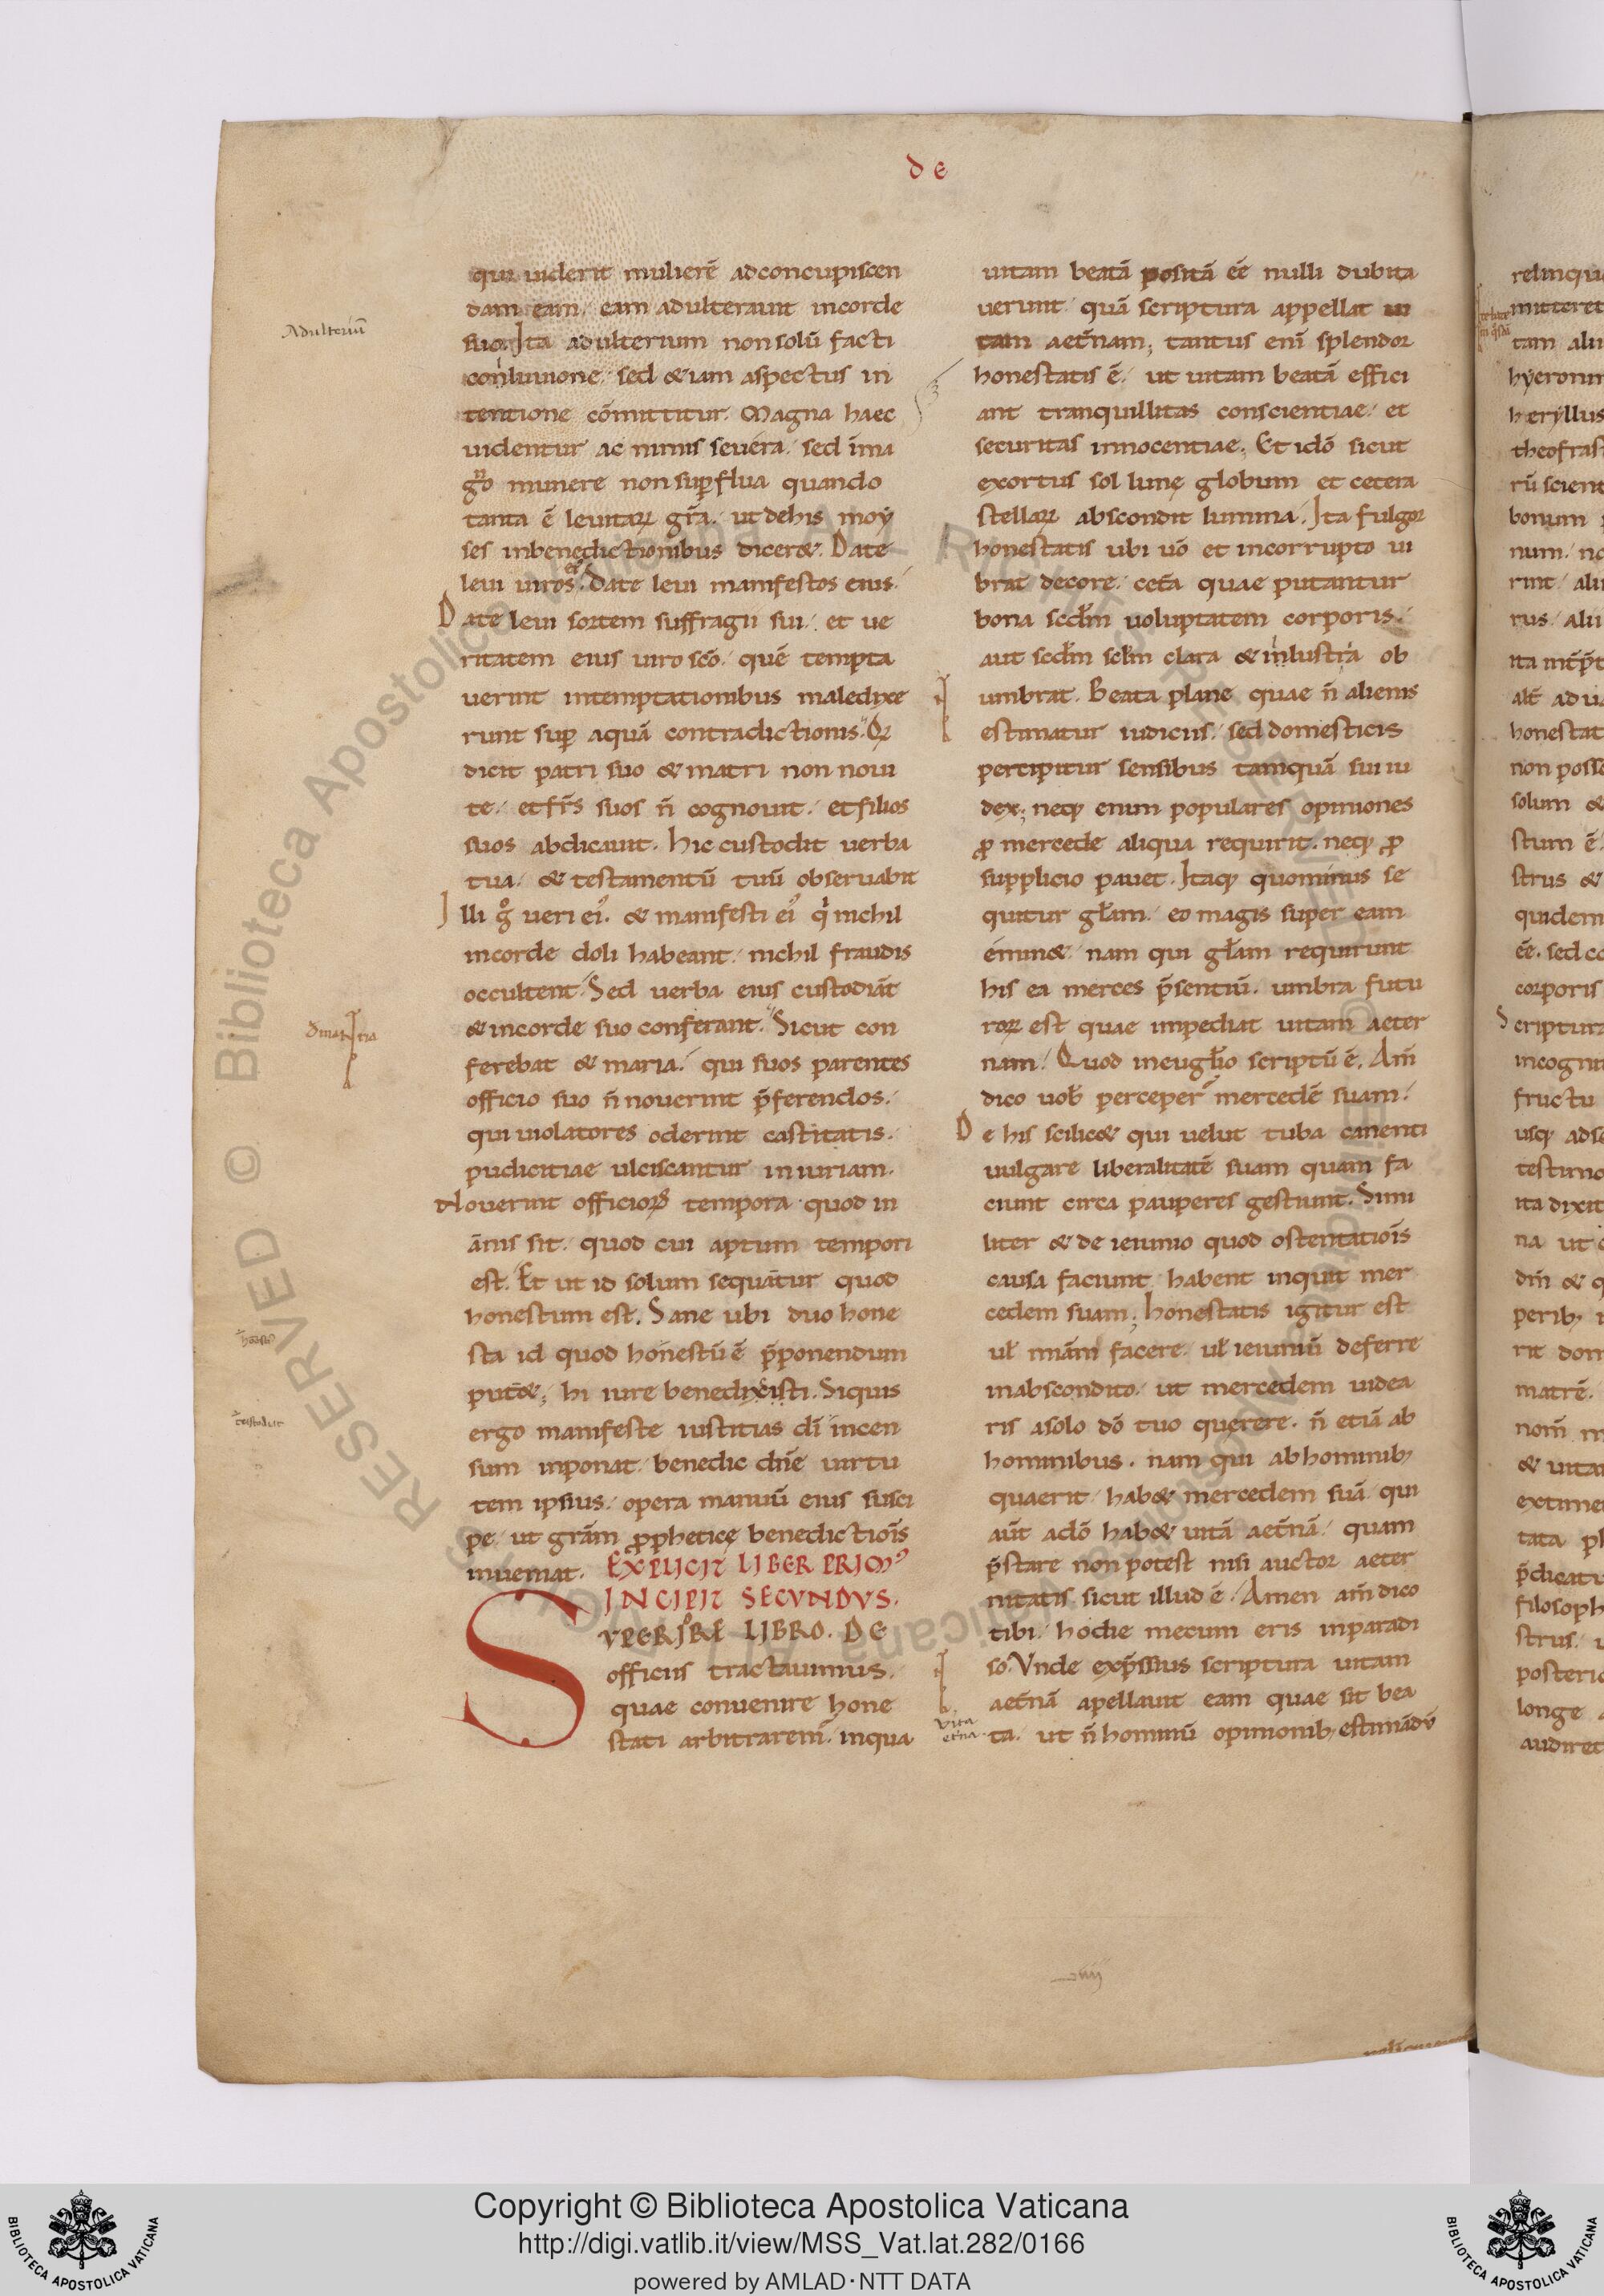 de
qui uiderit mulierē adconcupiscen
dam eam, eam adulterauit incorde
suo. Ita adulterium non solū facti
conluuione, sed &iam aspectus in
tentione cōmittitur. Magna haec
uidentur ac nimis seuera, sed ī ma
gno munere non supflua quando
tanta ē leuitaꝝ gr̄a, ut dehis moy
ses inbenedictionibus dicer&. Date
leui uiros ei᷒. Date leui manifestos eius.
Date leui sortem suffragii sui, et ue
ritatem eius uiro sc̄o, quē tempta
uerint intemptationibus maledixe
runt sup aquā contradictionis. Qui
dicit patri suo & matri non noui
te, et fr̄s suos n̄ cognouit, et filios
suos abdicauit. Hic custodit uerba
tua, & testamentū tuū obseruabit
Illi gͦ ueri ei᷒, & manifesti ei᷒ qͥ nichil
incorde doli habeant, nichil fraudis
occultent. Sed uerba eius custodiāt
& incorde suo conferant. Sicut con
ferebat & maria, qui suos parentes
officio suo n̄ nouerint p̄ferendos,
qui uiolatores oderint castitatis,
pudicitiae ulciscantur iniuriam.
Nouerint officioꝝ tempora quod in
āmis sit, quod cui aptum tempori
est. Et ut id solum sequātur quod
honestum est. Sane ubi duo hone
sta id quod honestū ē p̄ponendum
put&; hi iure benedixisti. Siquis
ergo manifeste iustitias dī incen
sum inponat, benedic dn̄e uirtu
tem ipsius, opera manuū eius susci
pe, ut grām ꝓpheticę benedictiōis
inueniat. EXPLICIT LIBER PRIM᷒
INCIPIT SECVNDVS.
SVPERIORE LIBRO. DE
officiis tractauimus,
quae conuenire hone
stati arbitrarem̄. inqua
uitam beatā positā ēē nulli dubita
uerunt, quā scriptura appellat ui
tam aet̄nam; tantus enī splendor
honestatis ē, ut uitam beatā effici
ant tranquillitas conscientiae, et
securitas innocentiae; Et idō sicut
exortus sol lunę globum et cetera
stellaꝝ abscondit lumina, Ita fulgor
honestatis ubi uō et incorrupto ui
brat decore, cet̄a quae putantur
bona scdm̄ uoluptatem corporis,
aut scdm̄ sclm̄ clara & inlustria ob
umbrat. Beata plane quae n̄ alienis
estimatur iudiciis, sed domesticis
percipitur sensibus tamquā sui iu
dex; neqꝫ enim populares opiniones
ꝓ mercede aliqua requirit, neqꝫ ꝓ
supplicio pauet. Itaqꝫ quominus se
quitur gl̄am, eo magis super eam
émin&, nam qui gl̄am requirunt
his ea merces p̄sentiū, umbra futu
roꝝ est quae impediat uitam aeter
nam. Quod ineugl̄io scriptū ē. Am̄
dico uob̄ perceper̄ mercedē suam.
De his scilic& qui uelut tuba canenti
uulgare liberalitatē suam quam fa
ciunt circa pauperes gestiunt. Simi
liter & de ieiunio quod ostentatiōis
causa faciunt, habent inquit mer
cedem suam; Honestatis igitur est
ul̄ miām facere, ul̄ ieiuniū deferre
inabscondito, ut mercedem uidea
ris asolo dō tuo querere, n̄ etiā ab
hominibus. nam qui ab hominibꝫ
quaerit, hab& mercedem suā, qui
aūt adō hab& uitā aet̄nā, quam
p̄stare non potest nisi auctor aeter
nitatis, sicut illud ē. Amen am̄ dico
tibi, hodie mecum eris inparadi
so. Vnde exp̄ssius scriptura uitam
aet̄nā apellauit eam quae sit bea
ta, ut n̄ hominū opinionibꝫ estimādū
Adulteriū
vita
etna
relinqu
mitteret
tam aliu
hyeronim
heryllus
theofras
rū scient
bonum
rus, alii
honestat
non poss
solum &
stum ē.
strus &
quidem
ēē. sed co
corporis
Scriptura
incogni
fructu
usqꝫ ads
testimo
ita dixit
na ut
rit dom
matrē.
& uita
extime
filosoph
posterio
longe
audiret
Copyright © Biblioteca Apostolica Vaticana
http://digi.vatlib.it/view/MSS_Vat.lat.282/0166
powered by AMLAD·NTT DATA
BIBLIOTECA APOSTOLICA VATICANA
BIBLIOTECA APOSTOLICA VATICANA